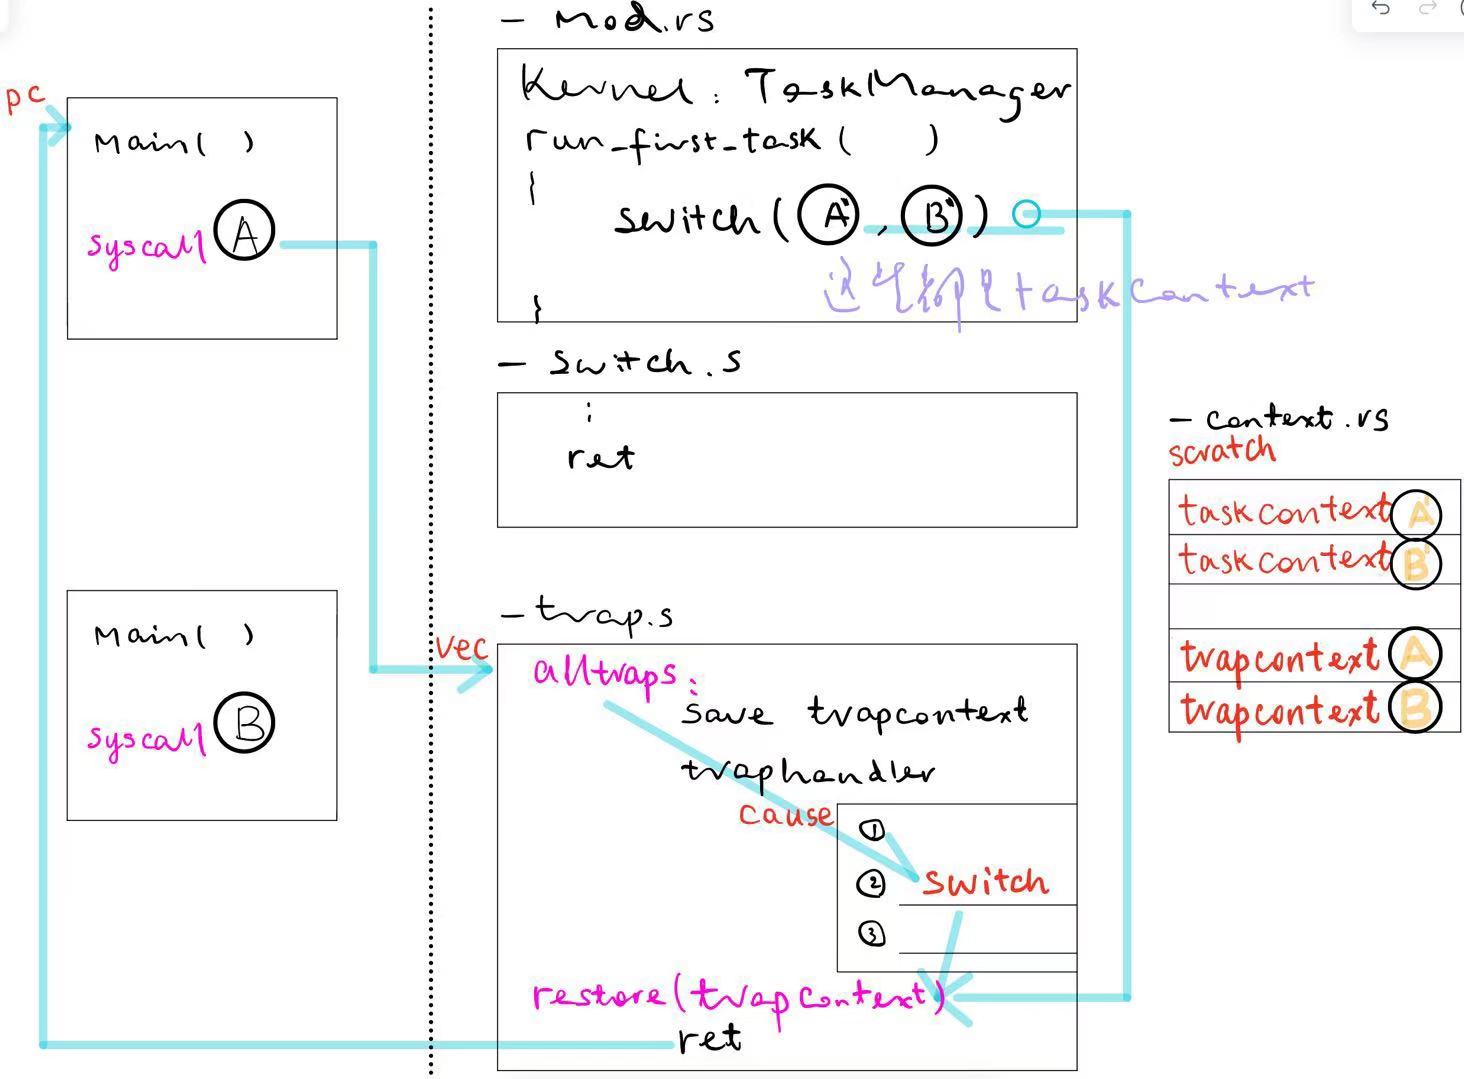 pc
Main( )
syscall A
Main( )
syscall B
- mod.rs
Kernel: TaskManager
run_first_task ( )
{
switch( A' , B' )
这些都是taskcontext
}
- switch.s
:
ret
- trap.s
vec
alltraps:
save trapcontext
traphandler
cause
①
② switch
③
restore(trapcontext)
ret
- context.rs
scratch
taskcontext A'
taskcontext B'
trapcontext A
trapcontext B